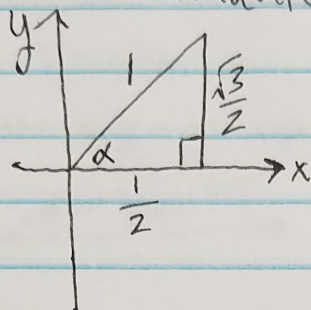 y
1
√3/2
α
x
1/2